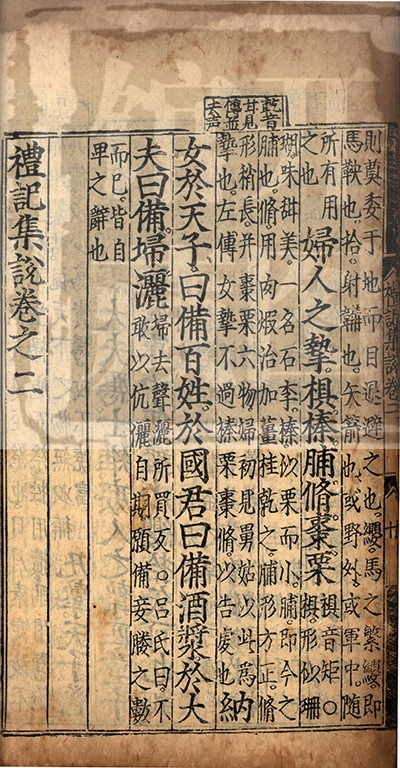 乾音
甘見
傳並
去声
則奠委于地而目退避之也。纓。馬之繁纓。即
馬鞅也。拾。射韝也。矢。箭也。或野外。或軍中。隨
所有用
之也
婦人之摯。椇榛脯脩棗栗
椇音矩。○
椇。形似珊
瑚。味甜美。一名石李。榛似栗而小。脯。即今之
脯也。脩。用肉煆治。加薑桂乾之。脯形方正。脩
形稍長。并棗栗六物。婦初見舅姑。以此爲
摯也。左傳女摯不過榛栗棗脩。以告虔也
納
女於天子。曰備百姓。於國君。曰備酒漿。於大
夫。曰備埽灑
埽去聲。灑所買反。○呂氏曰。不
敢以伉儷自期。願備妾媵之數
而已。皆自
卑之辭也
禮記集說卷之二